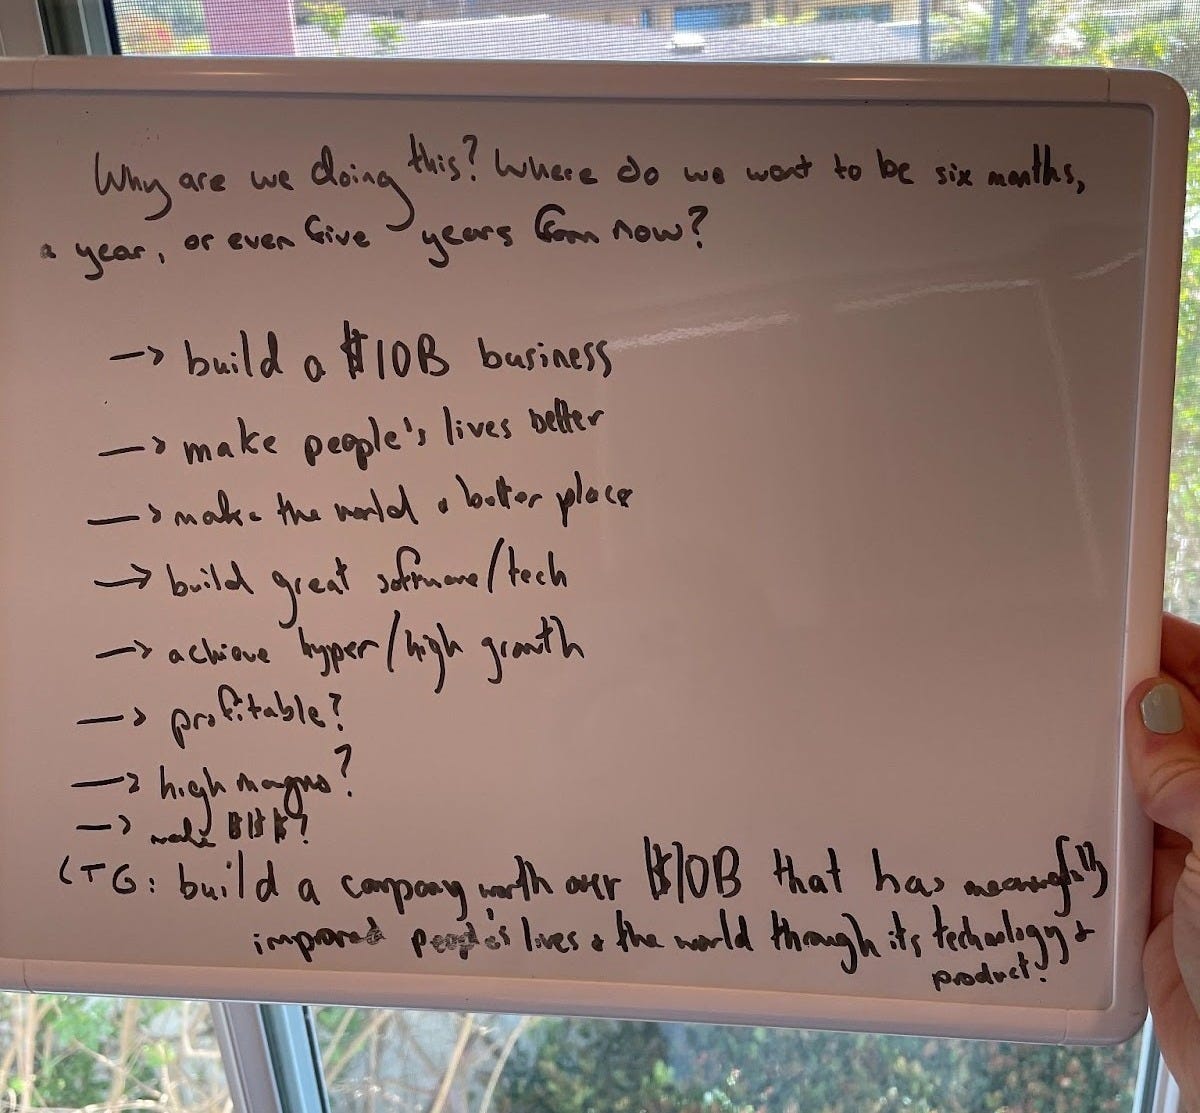 Why are we doing this? Where do we want to be six months,
a year, or even five years from now?
→ build a $10B business
→ make people's lives better
→ make the world a better place
→ build great software/tech
→ achieve hyper/high growth
→ profitable?
→ high margins?
→ make $$$?
LTG: build a company worth over $10B that has meaningfully
improved people's lives & the world through its technology &
product.